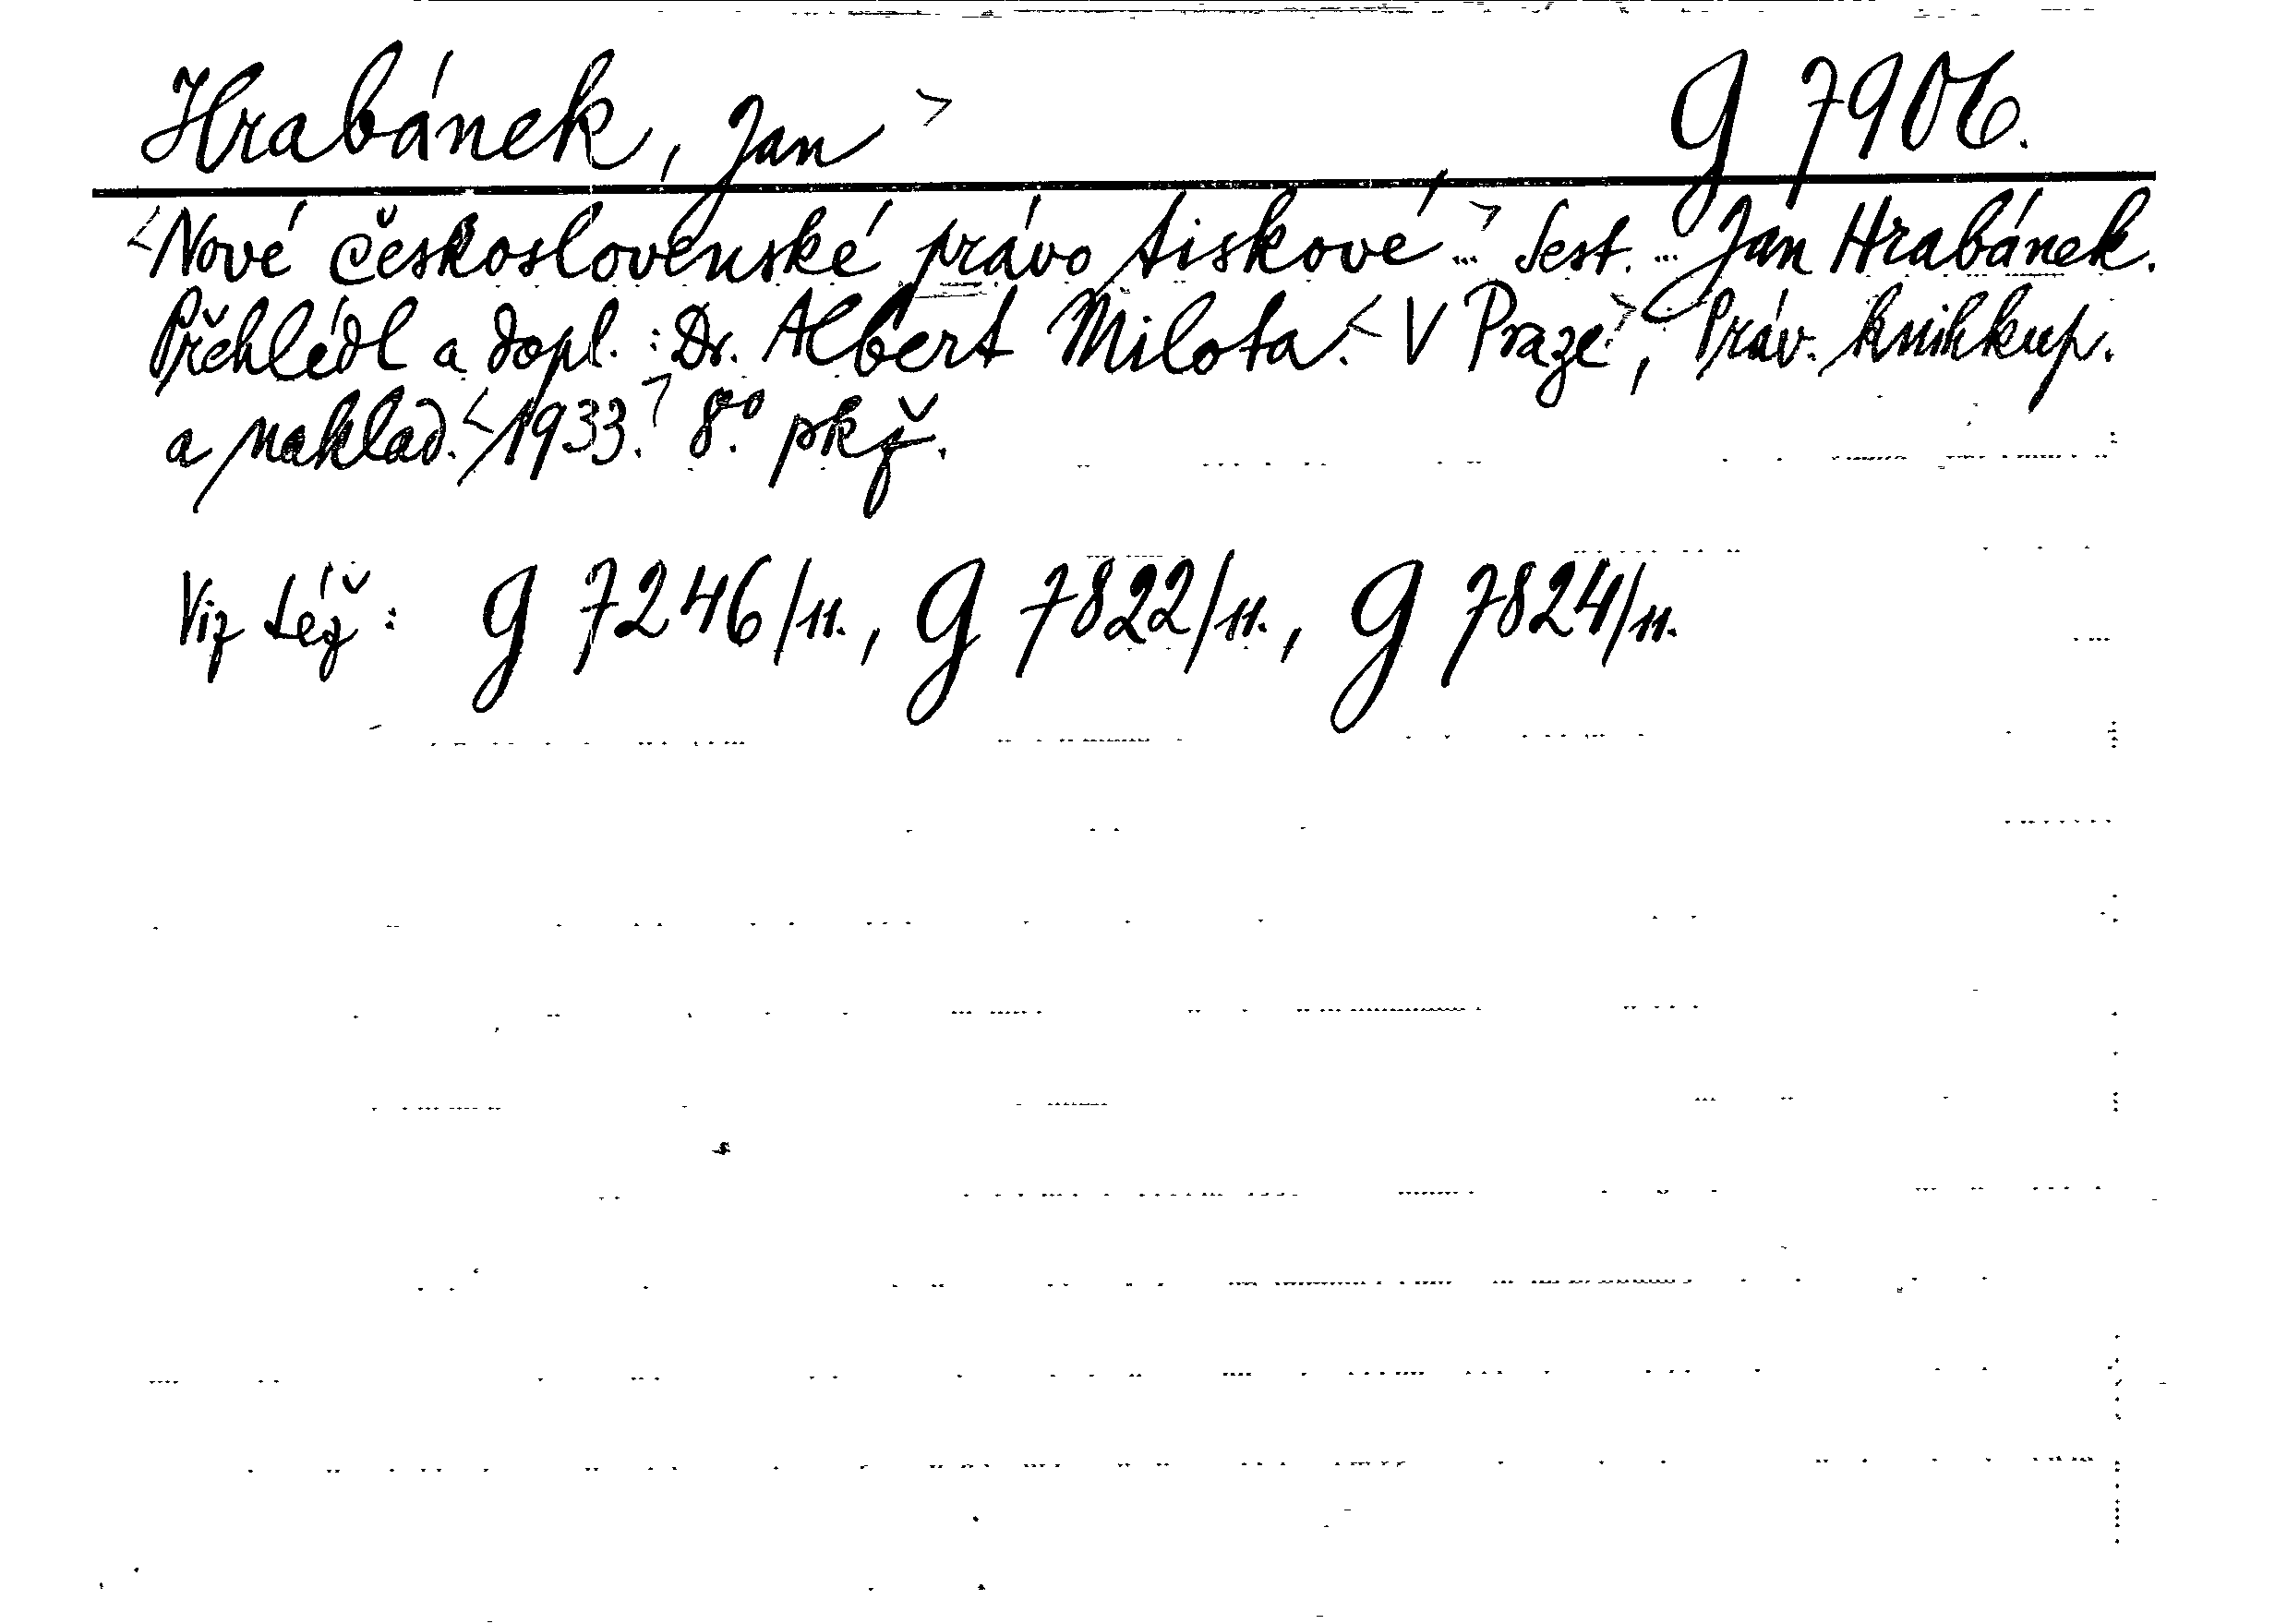 Hrabánek, Jan > G 7906.
<Nové československé právo tiskové...> Sest. ... Jan Hrabánek.
Přehlédl a dopl.: Dr. Albert Milota. <V Praze>, Práv. knihkup.
a naklad. <1933.> 8° pkž.
Viz též: G 7246/11., G 7822/11., G 7824/11.